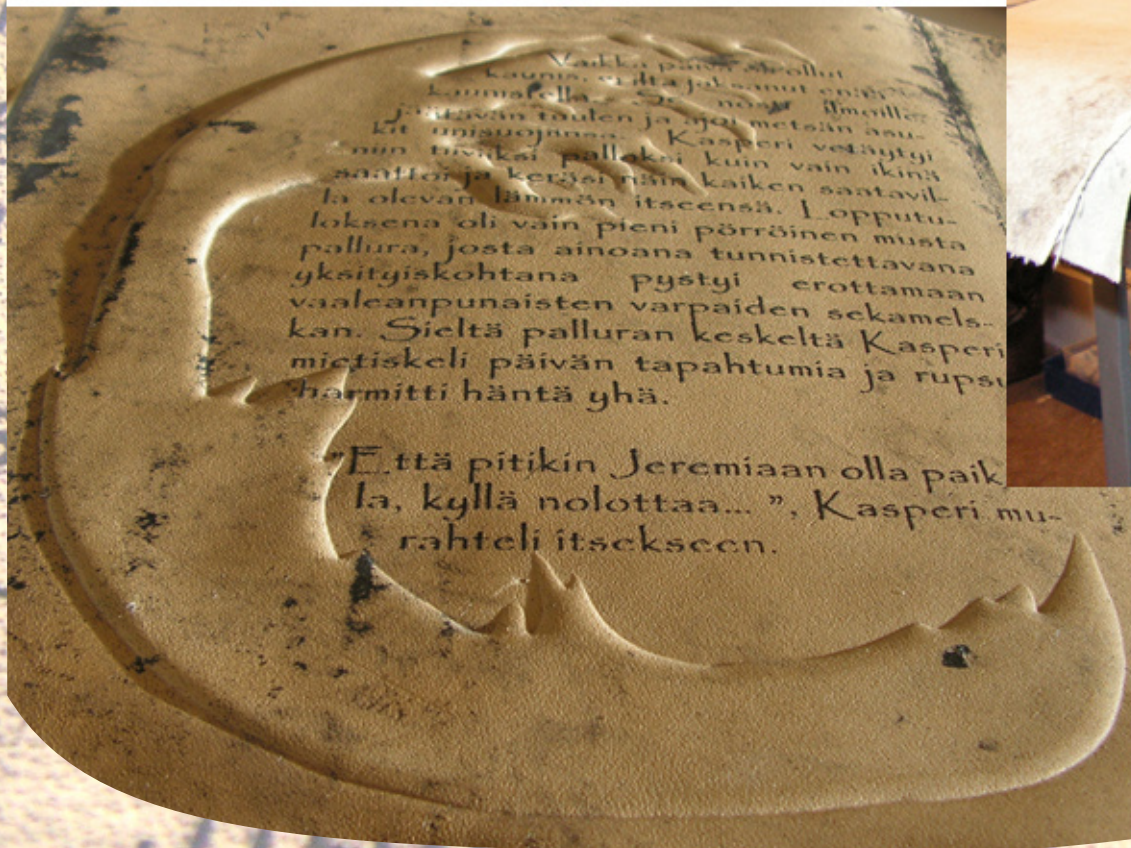 Vaikka päivä oli ollut
kaunis, ei ilta jaksanut enää
kaunistella. Se nosti ilmoille
jäätävän tuulen ja ajoi metsän asu-
kit unisuojiinsa. Kasperi vetäytyi
niin tiiviiksi palloksi kuin vain ikinä
saattoi ja keräsi näin kaiken saatavil-
la olevan lämmön itseensä. Lopputu-
loksena oli vain pieni pörröinen musta
pallura, josta ainoana tunnistettavana
yksityiskohtana pystyi erottamaan
vaaleanpunaisten varpaiden sekamels-
kan. Sieltä palluran keskeltä Kasperi
mietiskeli päivän tapahtumia ja
harmitti häntä yhä.
"Että pitikin Jeremiaan olla paik
la, kyllä nolottaa... ", Kasperi mu-
rahteli itsekseen.